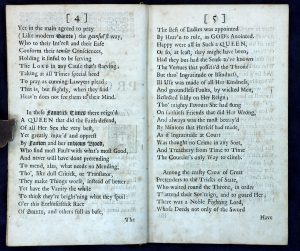 [ 4 ]
Yet in the main agreed to pray
( Like modern Saints ) the gainful'st way,
Who to their Int'rest and their Ease
Conform their tender Consciences,
Holding it sinful to be serving
The LORD in any Cause that's starving
Taking at all Times special heed
To pray as cunning Lawyer plead:
That is, but slightly, when they find
Heav'n does not see them of their Mind.
In these Fanatick Times there reign'd
A QUEEN that did the Faith defend,
Of all Her Sex the very best,
Yet greatly injur'd and opprest
By Faction and her ruinous Brood,
Who find most Fault with what's most Good,
And never will have done pretending
To mend, alas, what needs no Mending,
Tho', like dull Criticks, or Translator,
They make Things worse, instead of better;
Yet have the Vanity the while
To think they're bright'ning what they spoil:
O'er this Ecclesiastick Race
Of Saints, and others full as base,
The
[ 5 ]
The Best of Ladies was appointed
By Heav'n to rule, as GOD's Anointed.
Happy were all in Such a QUEEN,
Or so, at least, they might have been,
Had they but had the Sense to've known
The Vertues that possess'd the Throne:
But tho' Ingratitude or Blindness,
Ill Use was made of all Her Kindness,
And groundless Faults, by wicked Men,
Reflected filthy on Her Reign;
Tho' mighty Favours She had flung
On faithless Friends that did Her Wrong,
And always was the most betray'd
By Minions that Herself had made,
As if Ingratitude at Court
Was thought no Crime in any Sort,
And Treachery from Time to Time
The Courtier's only Way to climb.
Among the crafty Crew of Great
Pretenders to the Tricks of State,
Who waited round the Throne, in order
T'attend their Sovereign, and to guard Her;
There was a Noble Fighting Lord,
Whose Deeds not only of the Sword
Have